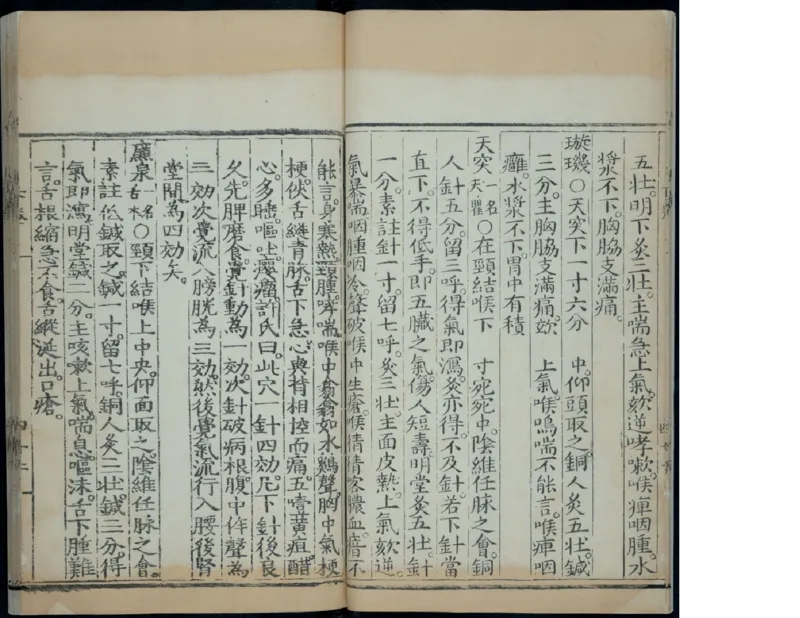 五壯。明下灸三壯。主喘急上氣。欬逆哮嗽。喉痺咽腫。水
漿不下。胸脇支滿痛。
璇璣○天突下一寸六分 中。仰頭取之。銅人灸五壯。鍼
三分。主胸脇支滿痛。欬 上氣。喉鳴喘不能言。喉痺咽
癰。水漿不下。胃中有積
天突 一名天瞿○在頸結喉下 寸宛宛中。陰維任脉之會。銅
人針五分。留三呼。得氣即瀉。灸亦得。不及針。若下針當
直下。不得低手。即五臟之氣傷人短壽。明堂灸五壯。針
一分。素註針一寸。留七呼。灸三壯。主面皮熱。上氣欬逆。
氣暴喘。咽腫咽冷。聲破喉中生瘡。喉猜猜咯膿血。瘖不
能言。身寒熱。頸腫。哮喘。喉中翕翕如水鷄聲。胸中氣梗
梗。俠舌縫青脉。舌下急。心與背相控而痛。五噎黃疸。醋
心多唾。嘔吐。癭瘤。許氏曰。此穴一針四効。凡下針後良
久。先脾磨食。覺針動為一効。次針破病根。腹中作聲為
二効。次覺流入膀胱為三効。然後覺氣流行入腰後腎
堂間為四効矣。
廉泉 一名舌本○頸下結喉上中央。仰面取之。陰維任脉之會。
素註低鍼取之。鍼一寸。留七呼。銅人灸三壯。鍼三分。得
氣即瀉。明堂鍼二分。主咳嗽上氣。喘息。嘔沫。舌下腫難
言。舌根縮急不食。舌縱涎出。口瘡。